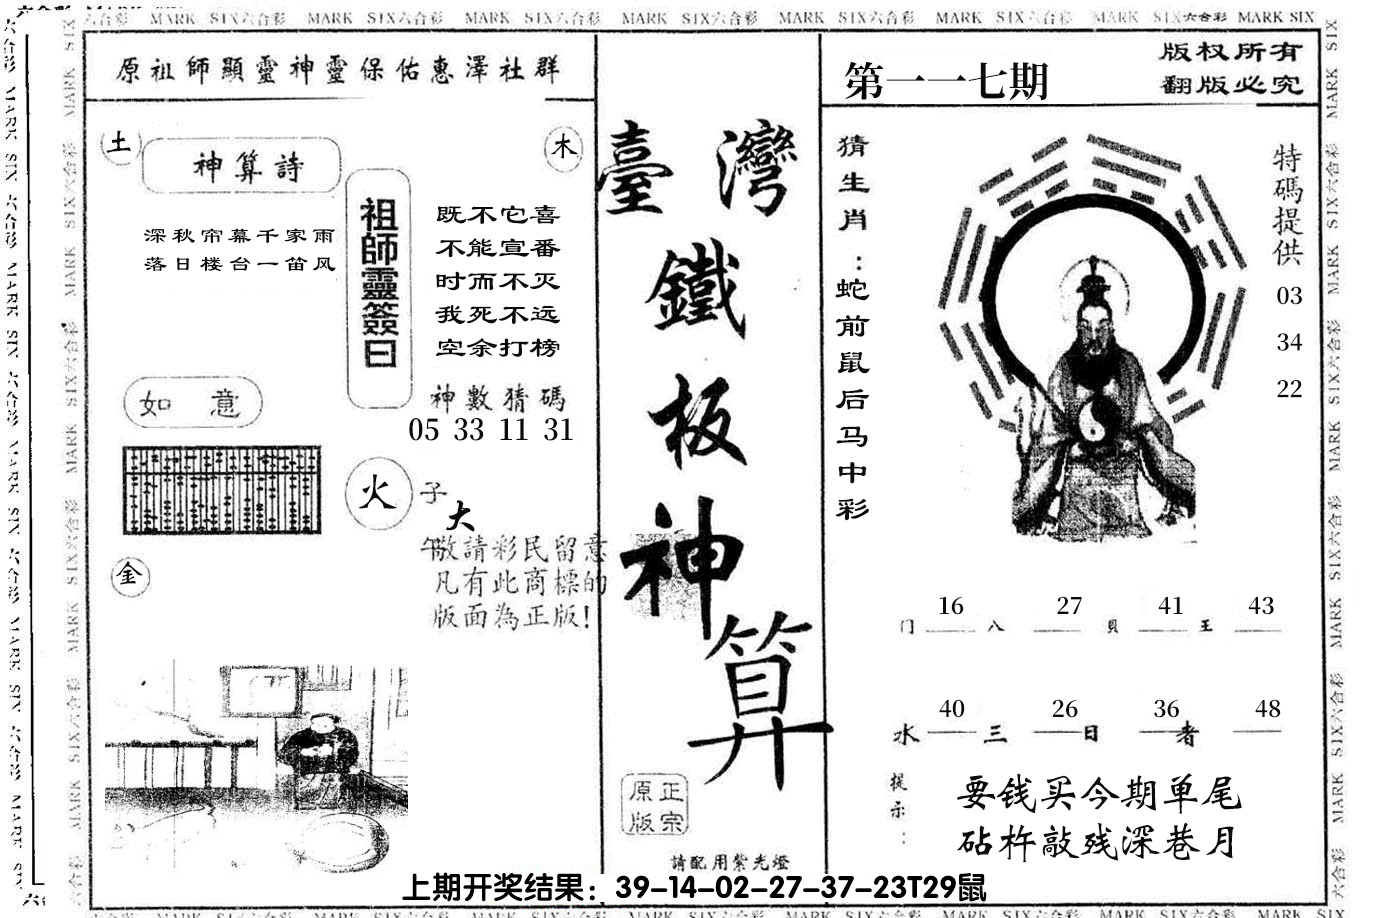 六合彩 MARK SIX六合彩 MARK SIX六合彩 MARK SIX六合彩 MARK SIX六合彩 MARK SIX六合彩 MARK SIX六合彩 MARK SIX六合彩 MARK SIX
原祖師顯靈神靈保佑惠澤社群
土
神算詩
木
深秋帘幕千家雨
落日楼台一笛风
祖師靈簽曰
既不它喜
不能宣番
时而不灭
我死不远
空余打榜
神數猜碼
05 33 11 31
如意
火
子
大
午
敬請彩民留意
凡有此商標的
版面為正版!
金
臺灣
鐵
板
神
算
正宗
原版
請配用紫光燈
第一一七期
版权所有
翻版必究
猜生肖：蛇前鼠后马中彩
特碼提供
03
34
22
16 27 41 43
门 八 貝 王
40 26 36 48
水 三 日 者
提示：
要钱买今期单尾
砧杵敲残深巷月
上期开奖结果：39-14-02-27-37-23T29鼠